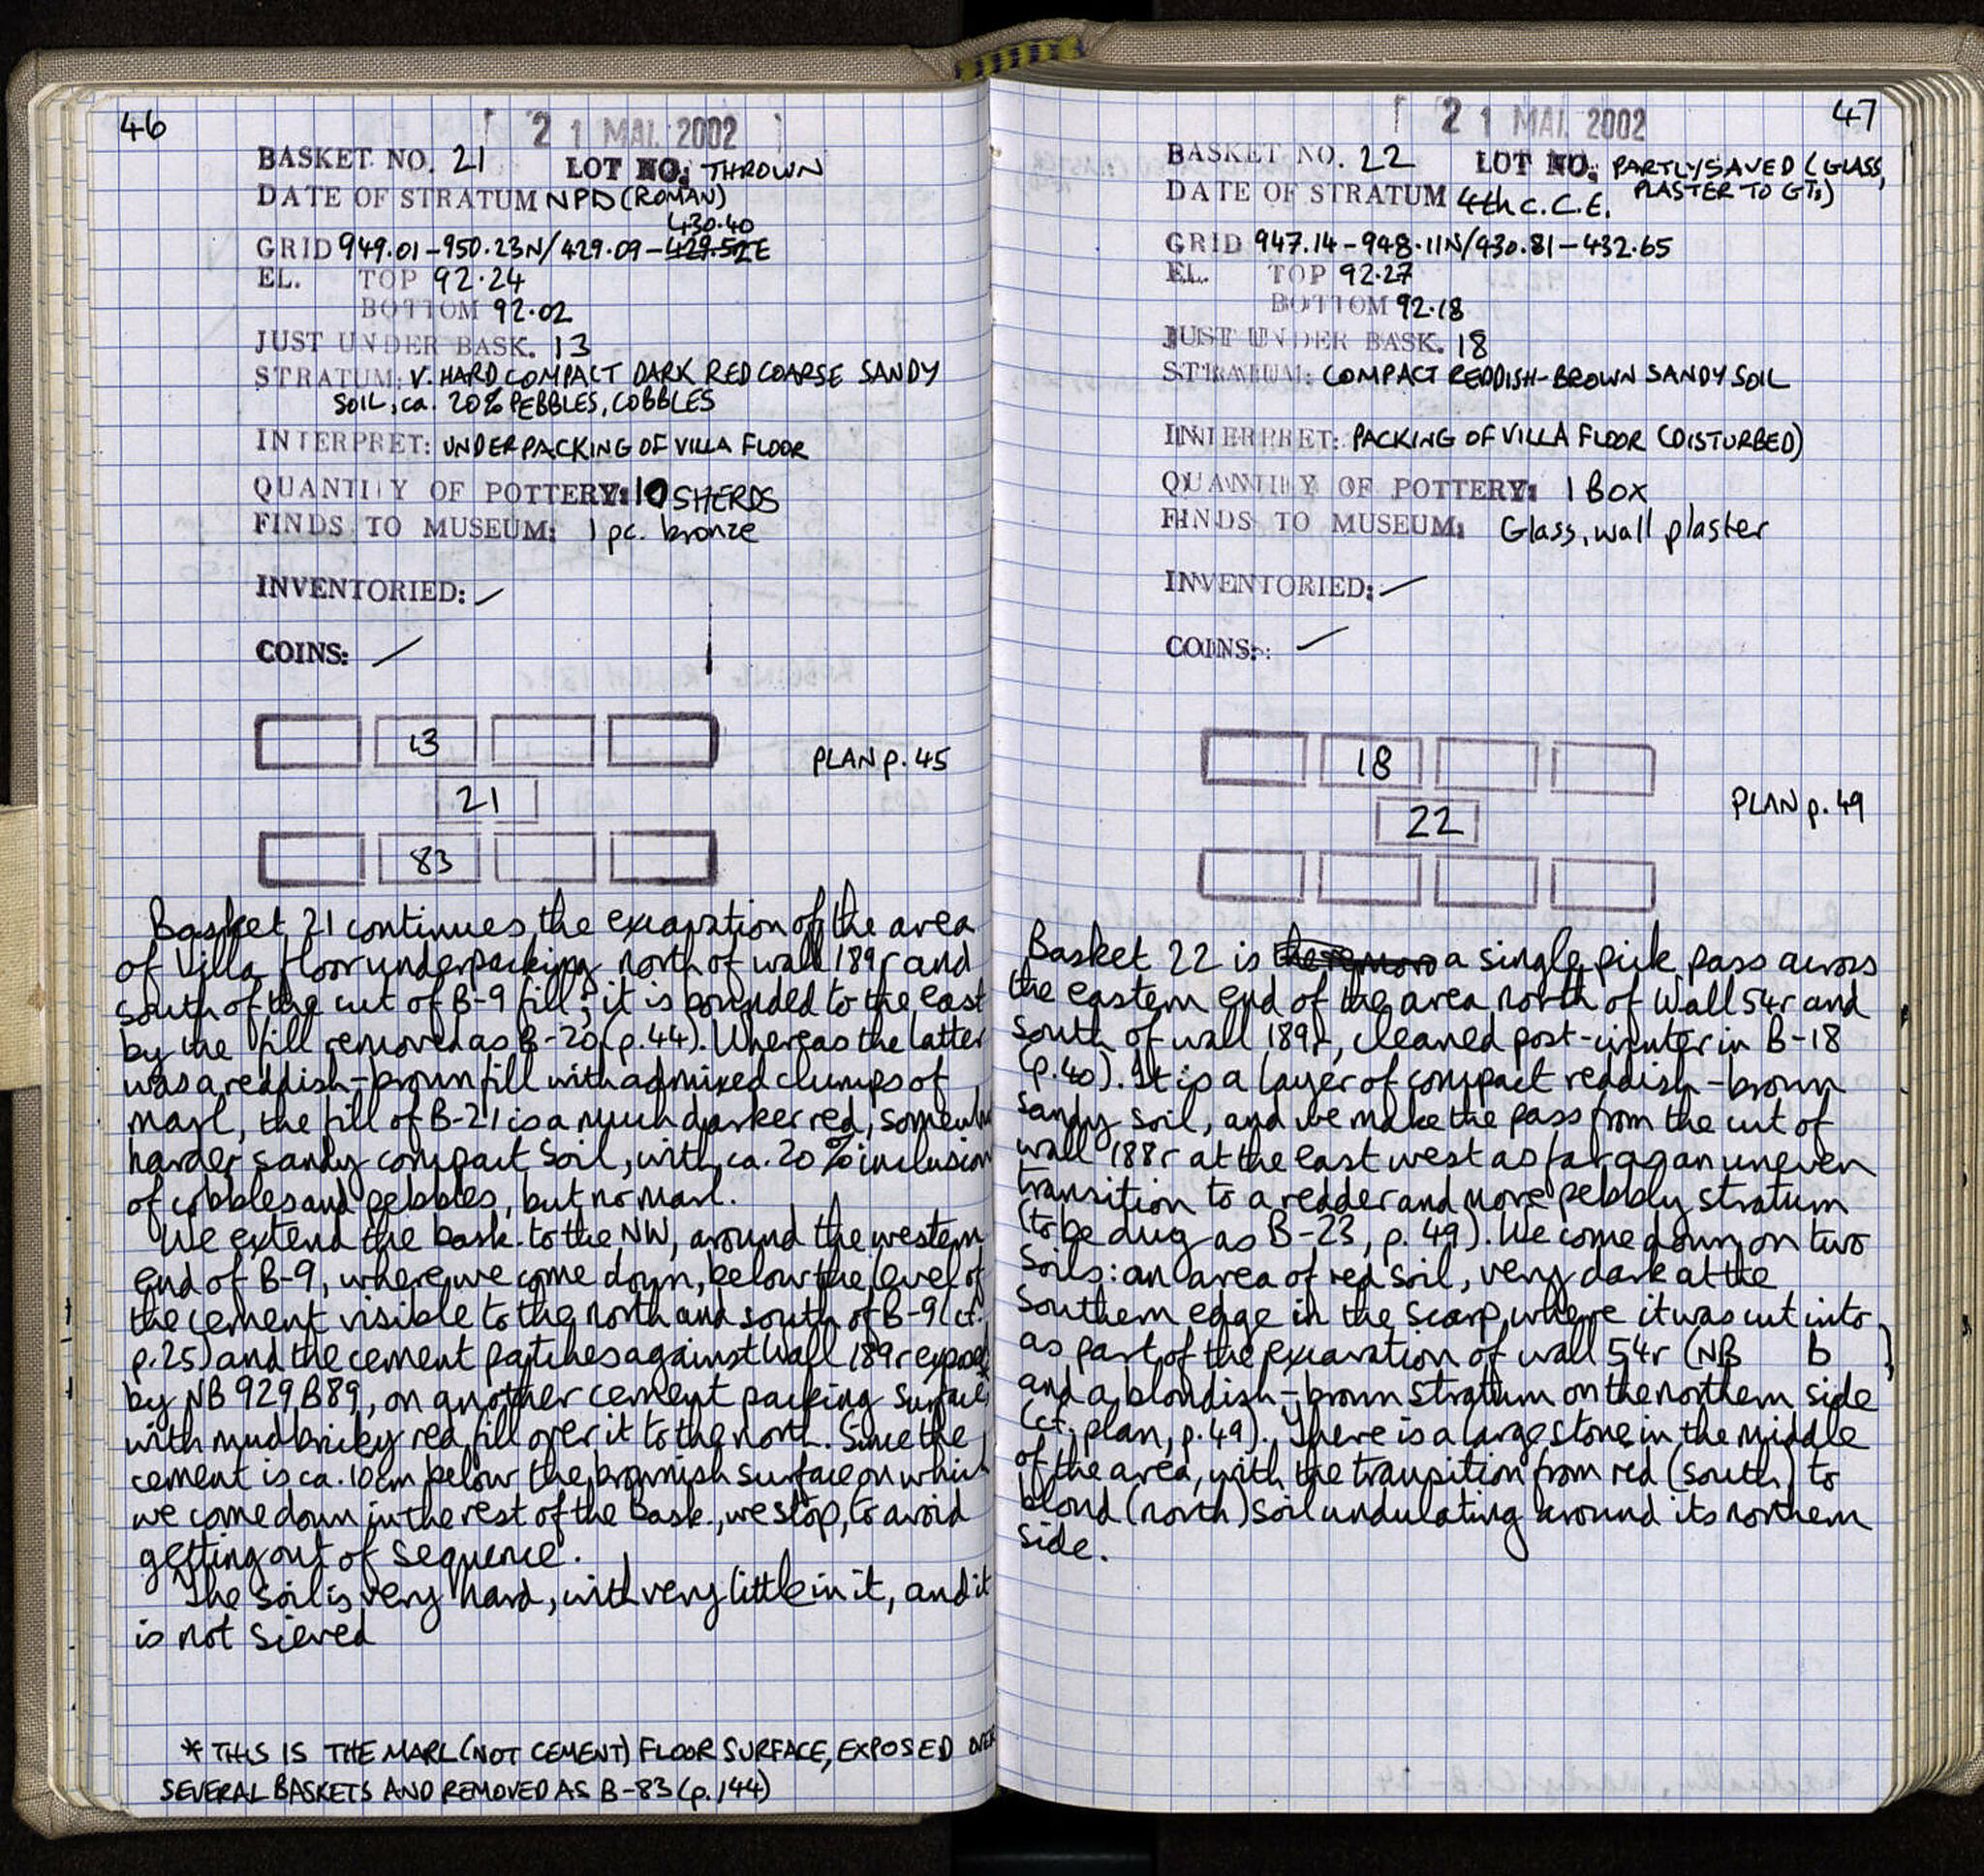 46
2 1 MAI. 2002
BASKET NO. 21 LOT NO: THROWN
DATE OF STRATUM NPD (ROMAN)
430.40
GRID 949.01-950.23N/429.09-429.52E
EL. TOP 92.24
BOTTOM 92.02
JUST UNDER BASK. 13
STRATUM: V. HARD COMPACT DARK RED COARSE SANDY
SOIL, ca. 20% PEBBLES, COBBLES
INTERPRET: UNDERPACKING OF VILLA FLOOR
QUANTITY OF POTTERY: 10 SHERDS
FINDS TO MUSEUM: 1 pc. bronze
INVENTORIED: —
COINS: —
13
PLAN p. 45
21
83
Basket 21 continues the excavation of the area
of Villa floor underpacking north of wall 189r and
south of the cut of B-9 fill; it is bounded to the east
by the fill removed as B-20 (p.44). Whereas the latter
was a reddish-brown fill with admixed clumps of
marl, the fill of B-21 is a much darker red, somewha
harder sandy compact soil, with ca. 20% inclusion
of cobbles and pebbles, but no marl.
We extend the bask. to the NW, around the western
end of B-9, where we come down, below the level of
the cement visible to the north and south of B-9 (cf.
p.25) and the cement patches against Wall 189r exposed
by NB 929 B89, on another cement packing surface*
with mudbricky red fill over it to the north. Since the
cement is ca. 10cm below the brownish surface on which
we come down in the rest of the bask., we stop, to avoid
getting out of sequence.
The soil is very hard, with very little in it, and it
is not sieved
* THIS IS THE MARL (NOT CEMENT) FLOOR SURFACE, EXPOSED OVER
SEVERAL BASKETS AND REMOVED AS B-83 (p.144)
47
2 1 MAI. 2002
BASKET NO. 22 LOT NO: PARTLY SAVED (GLASS,
PLASTER TO GTs)
DATE OF STRATUM 4th C. C.E.
GRID 947.14-948.11N/430.81-432.65
EL. TOP 92.27
BOTTOM 92.18
JUST UNDER BASK. 18
STRATUM: COMPACT REDDISH-BROWN SANDY SOIL
INTERPRET: PACKING OF VILLA FLOOR (DISTURBED)
QUANTITY OF POTTERY: 1 BOX
FINDS TO MUSEUM: Glass, wall plaster
INVENTORIED: —
COINS: —
18
22
PLAN p. 49
Basket 22 is a single pick pass across
the eastern end of the area north of Wall 54r and
south of wall 189r, cleaned post-winter in B-18
(p.40). It is a layer of compact reddish-brown
sandy soil, and we make the pass from the cut of
wall 188r at the east west as far as an uneven
transition to a redder and more pebbly stratum
(to be dug as B-23, p. 49). We come down on two
soils: an area of red soil, very dark at the
southern edge in the scarp, where it was cut into
as part of the excavation of wall 54r (NB b )
and a blondish-brown stratum on the northern side
(cf. plan, p.49). There is a large stone in the middle
of the area, with the transition from red (south) to
blond (north) soil undulating around its northern
side.